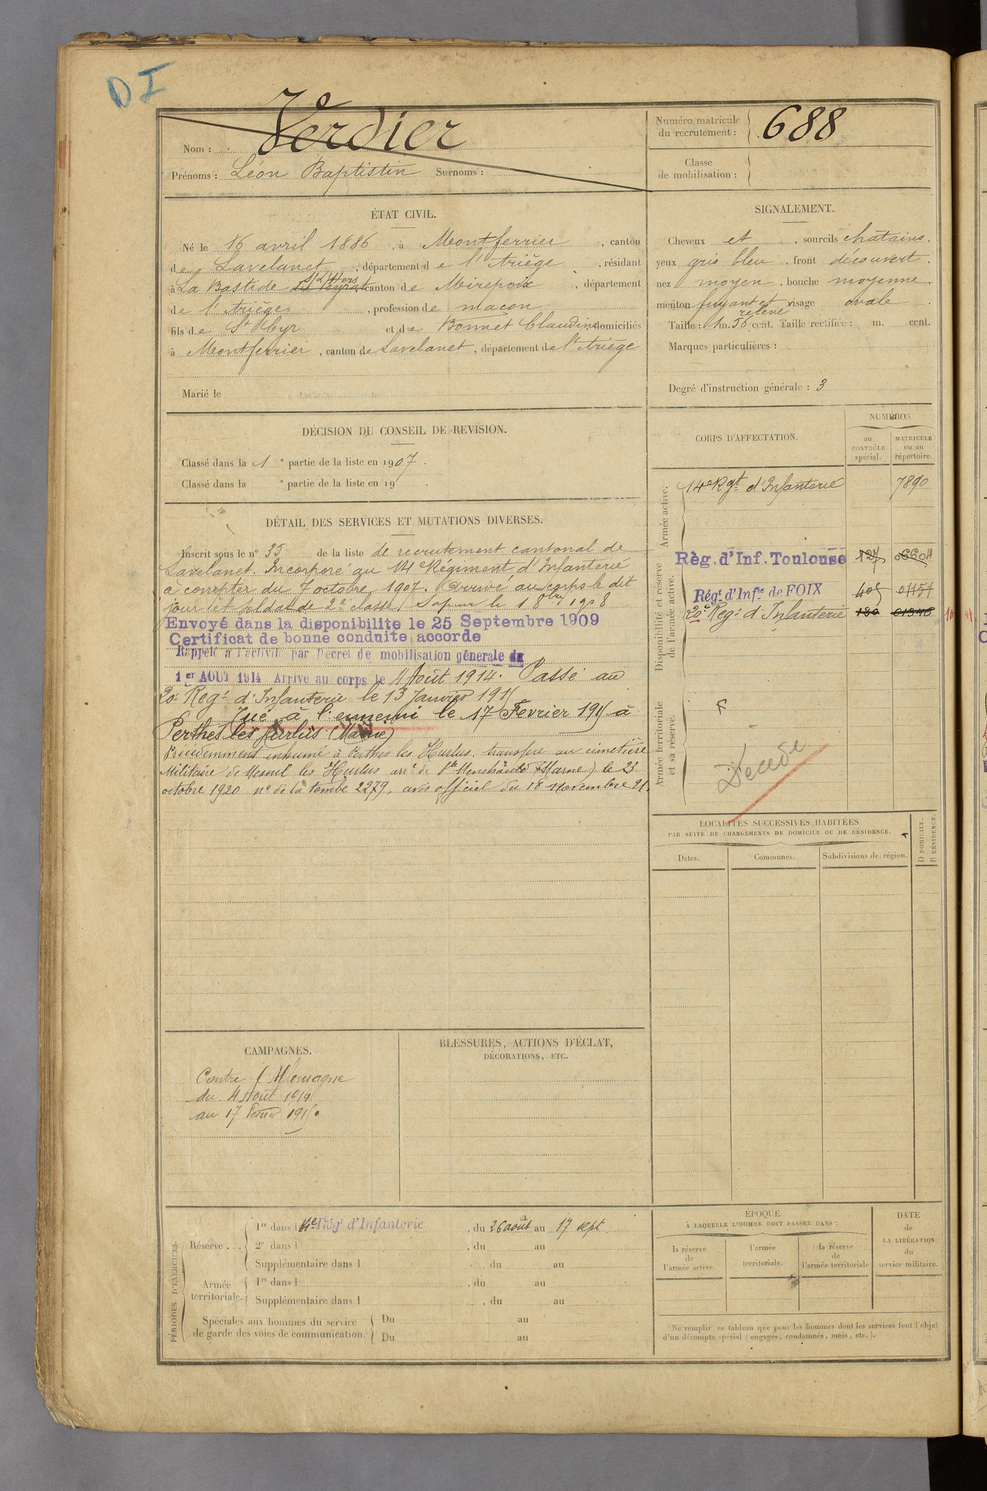 D I
Nom : Verdier
Prénoms : Léon Baptistin Surnoms :
Numéro matricule du recrutement : 688
Classe de mobilisation :
ÉTAT CIVIL.
Né le 16 avril 1886, à Montferrier, canton
de Lavelanet, département de l'Ariège, résidant
à La Bastide canton de Mirepoix, département
de l'Ariège, profession de maçon
fils de St Cyr et de Bonnet Claudine domiciliés
à Montferrier, canton de Lavelanet, département de l'Ariège
Marié le
SIGNALEMENT.
Cheveux et , sourcils chatains.
yeux gris bleu, front découvert.
nez moyen, bouche moyenne
menton fuyant et relevé visage ovale.
Taille : 1m. 56 cent. Taille rectifiée : m. cent.
Marques particulières :
Degré d'instruction générale : 3
DÉCISION DU CONSEIL DE REVISION.
Classé dans la 1e partie de la liste en 1907.
Classé dans la e partie de la liste en 19 .
DÉTAIL DES SERVICES ET MUTATIONS DIVERSES.
Inscrit sous le n° 35 de la liste de recrutement cantonal de
Lavelanet. Incorporé au 14e Régiment d'Infanterie
à compter du 7 octobre 1907. Arrivé au corps le dit
jour et soldat de 2e classe. Sapeur le 18 1908
Envoyé dans la disponibilite le 25 Septembre 1909
Certificat de bonne conduite accorde
Rappelé à l'activité par Décret de mobilisation génerale du
1er AOUT 1914 Arrivé au corps le 4 Août 1914. Passé au
20e Regt d'Infanterie le 13 Janvier 1915
Tué à l'ennemi le 17 Fevrier 1915 à
Perthes les Hurlus (Marne)
Précédemment inhumé à Perthes les Hurlus, transféré au cimetière
Militaire de Mesnil les Hurlus arrt de Ste Menehould (Marne) le 23
octobre 1920 n° de la tombe 2279, avis officiel du 18 novembre 21.
CORPS D'AFFECTATION.
NUMÉROS
au CONTRÔLE spécial.
MATRICULE ou au répertoire.
Armée active.
14e Rgt d'Infanterie 7890
Disponibilité et réserve de l'armée active.
Règ. d'Inf. Toulouse
Régt d'Infie de FOIX
20e Regt d'Infanterie
Armée territoriale et sa réserve.
Décédé
LOCALITÉS SUCCESSIVES HABITÉES
PAR SUITE DE CHANGEMENTS DE DOMICILE OU DE RÉSIDENCE.
Dates. Communes. Subdivisions de région.
D DOMICILE. R RÉSIDENCE.
CAMPAGNES.
Contre l'Allemagne
du 4 Août 1914
au 17 Fevrier 1915.
BLESSURES, ACTIONS D'ÉCLAT,
DÉCORATIONS, ETC.
PÉRIODES D'EXERCICES.
Réserve . . .
1re dans l 14e Régt d'Infanterie, du 26 août au 17 sept.
2e dans l , du au
Supplémentaire dans l , du au
Armée territoriale.
1re dans l , du au
Supplémentaire dans l , du au
Spéciales aux hommes du service de garde des voies de communication.
Du au
Du au
ÉPOQUE
À LAQUELLE L'HOMME DOIT PASSER DANS :
la réserve de l'armée active.
l'armée territoriale.
la réserve de l'armée territoriale
DATE de LA LIBÉRATION du service militaire.
Ne remplir ce tableau que pour les hommes dont les services font l'objet
d'un décompte spécial (engagés, condamnés, omis, etc.).